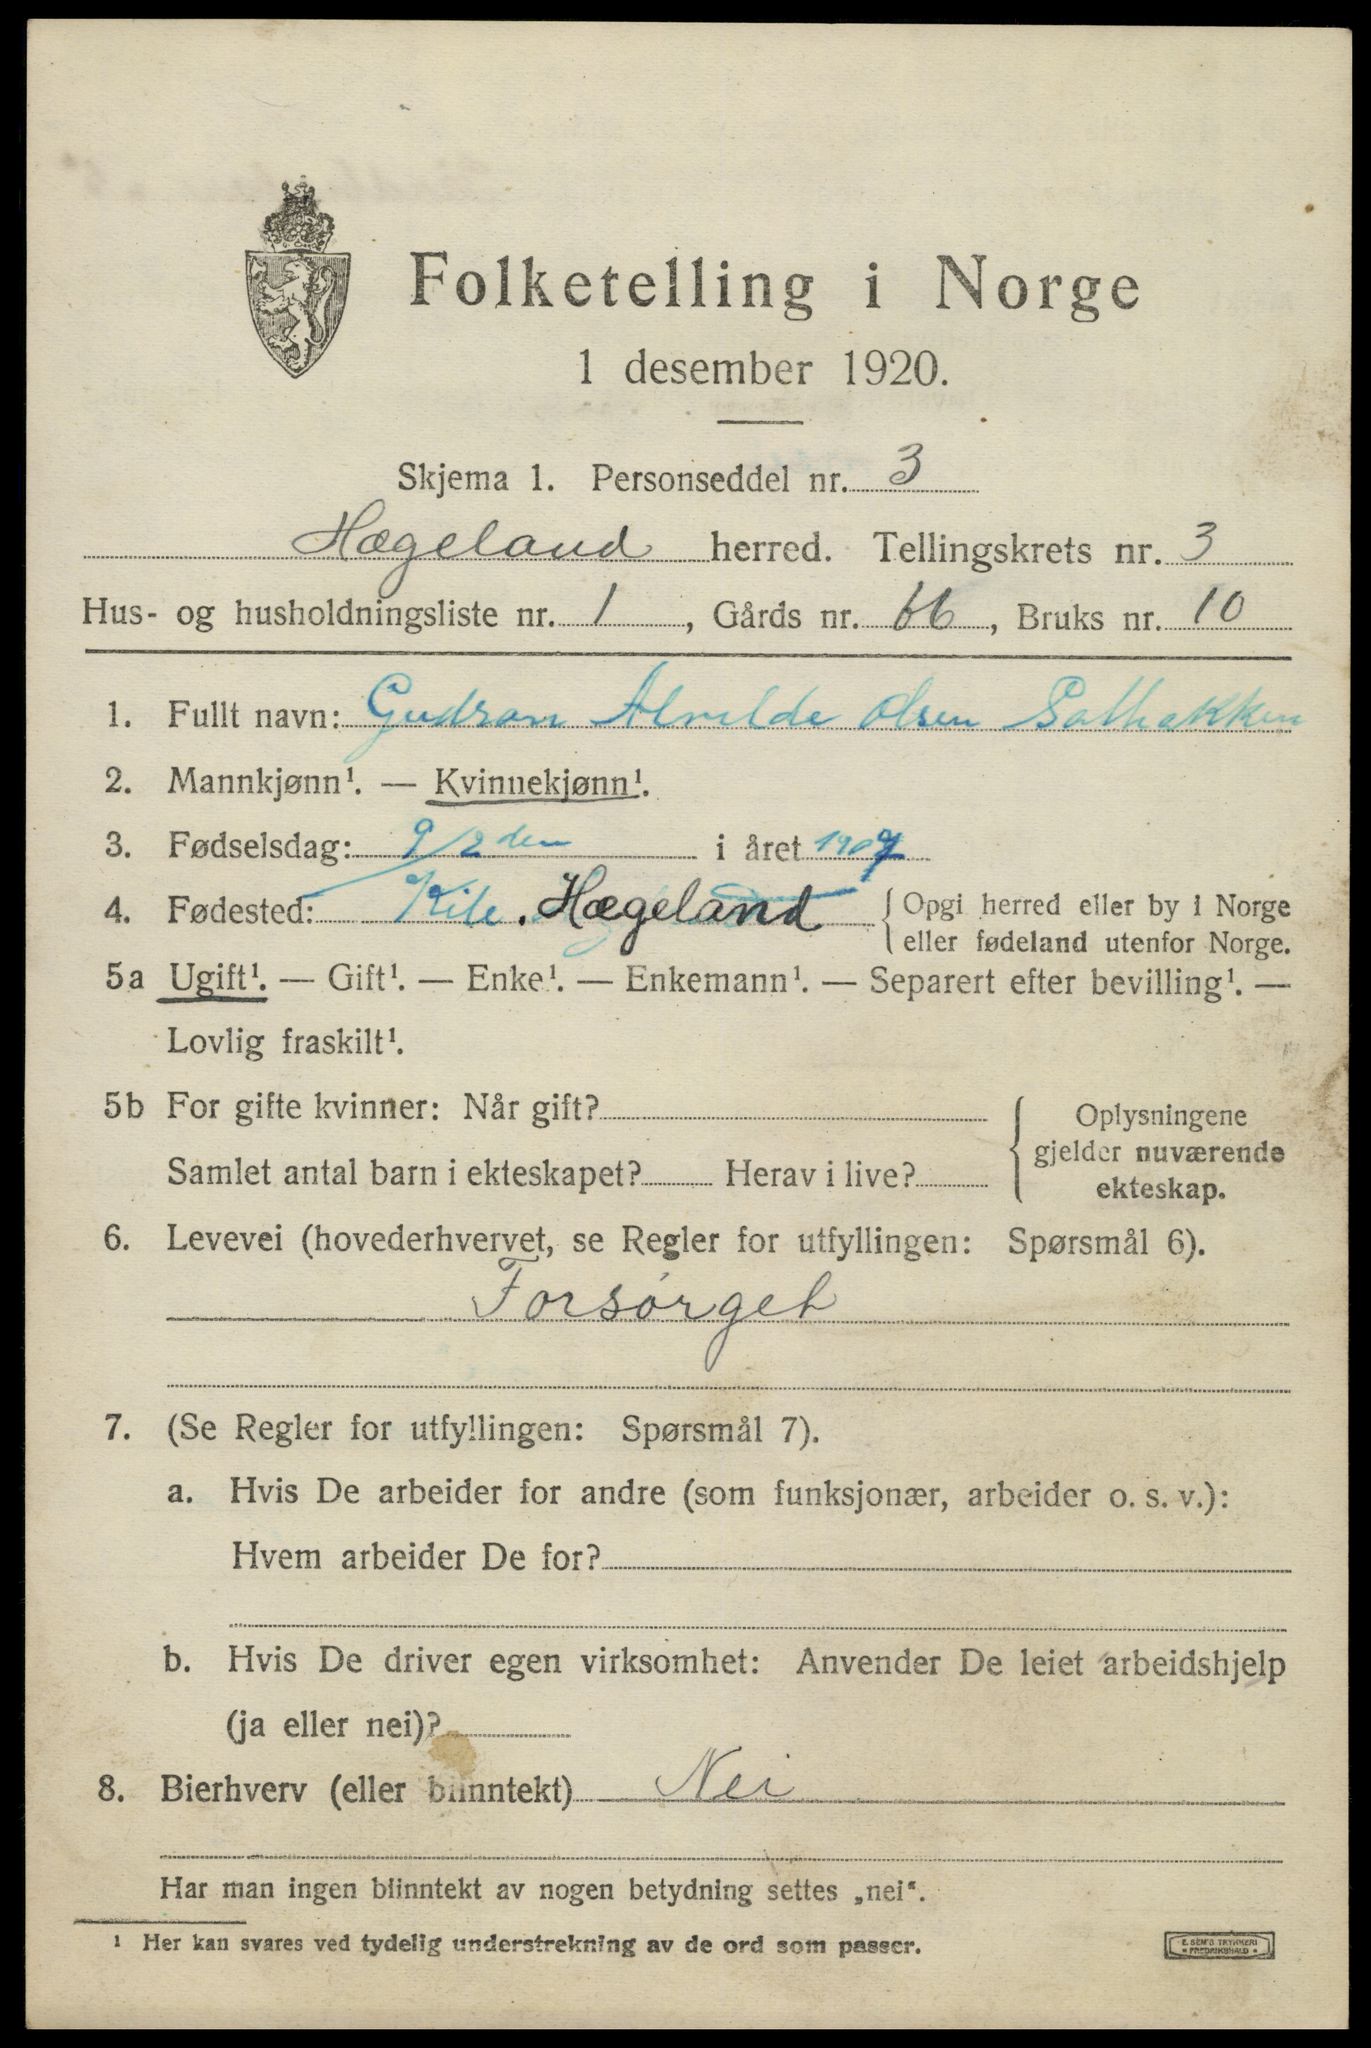 Folketelling i Norge
1 desember 1920.
Skjema 1. Personseddel nr. 3
Hægeland herred. Tellingskrets nr. 3
Hus- og husholdningsliste nr. 1, Gårds nr. 66, Bruks nr. 10
1. Fullt navn: Gudron Alvilde Olsen
2. Mannkjønn¹. — Kvinnekjønn¹.
3. Fødselsdag: 9/2 den i året 1907
4. Fødested: Kile. Hægeland { Opgi herred eller by i Norge
eller fødeland utenfor Norge.
5a Ugift¹. — Gift¹. — Enke¹. — Enkemann¹. — Separert efter bevilling¹. —
Lovlig fraskilt¹.
5b For gifte kvinner: Når gift?
Samlet antal barn i ekteskapet? Herav i live?
{ Oplysningene
gjelder nuværende
ekteskap.
6. Levevei (hovederhvervet, se Regler for utfyllingen: Spørsmål 6).
Forsørget
7. (Se Regler for utfyllingen: Spørsmål 7).
a. Hvis De arbeider for andre (som funksjonær, arbeider o. s. v.):
Hvem arbeider De for?
b. Hvis De driver egen virksomhet: Anvender De leiet arbeidshjelp
(ja eller nei)?
8. Bierhverv (eller biinntekt) Nei
Har man ingen biinntekt av nogen betydning settes „nei“.
¹ Her kan svares ved tydelig understrekning av de ord som passer.
E. SEM'S TRYKKERI
FREDRIKSHALD